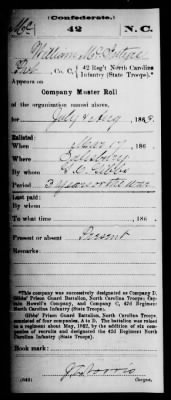 (Confederate.)
Mc 42 N.C.
William McIntyre
Pvt, Co. C, 42 Reg't North Carolina
Infantry (State Troops).*
Appears on
Company Muster Roll
of the organization named above,
for July & Aug, 186 3.
Enlisted:
When May 17, 186
Where Salisbury
By whom Gibbs
Period 3 years or the war
Last paid:
By whom
To what time , 186 .
Present or absent Present
Remarks:
*This company was successively designated as Company D,
Gibbs' Prison Guard Battalion, North Carolina Troops; Captain
Howell's Company, and Company C, 42d Regiment
North Carolina Infantry (State Troops).
Gibbs' Prison Guard Battalion, North Carolina Troops,
consisted of four companies, A to D. The battalion was raised
to a regiment about May, 1862, by the addition of six companies
of recruits and designated the 42d Regiment North
Carolina Infantry (State Troops).
Book mark:
(642)
Copyist.